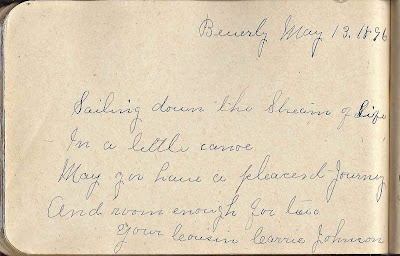 Beverly May 13. 1896
Sailing down the Stream of Life
In a little canoe
May you have a pleacesd Journey
And room enough for two
Your Cousin Carrie Johnson